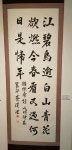 江碧鳥逾白山青花
欲燃今春看又過何
日是歸年